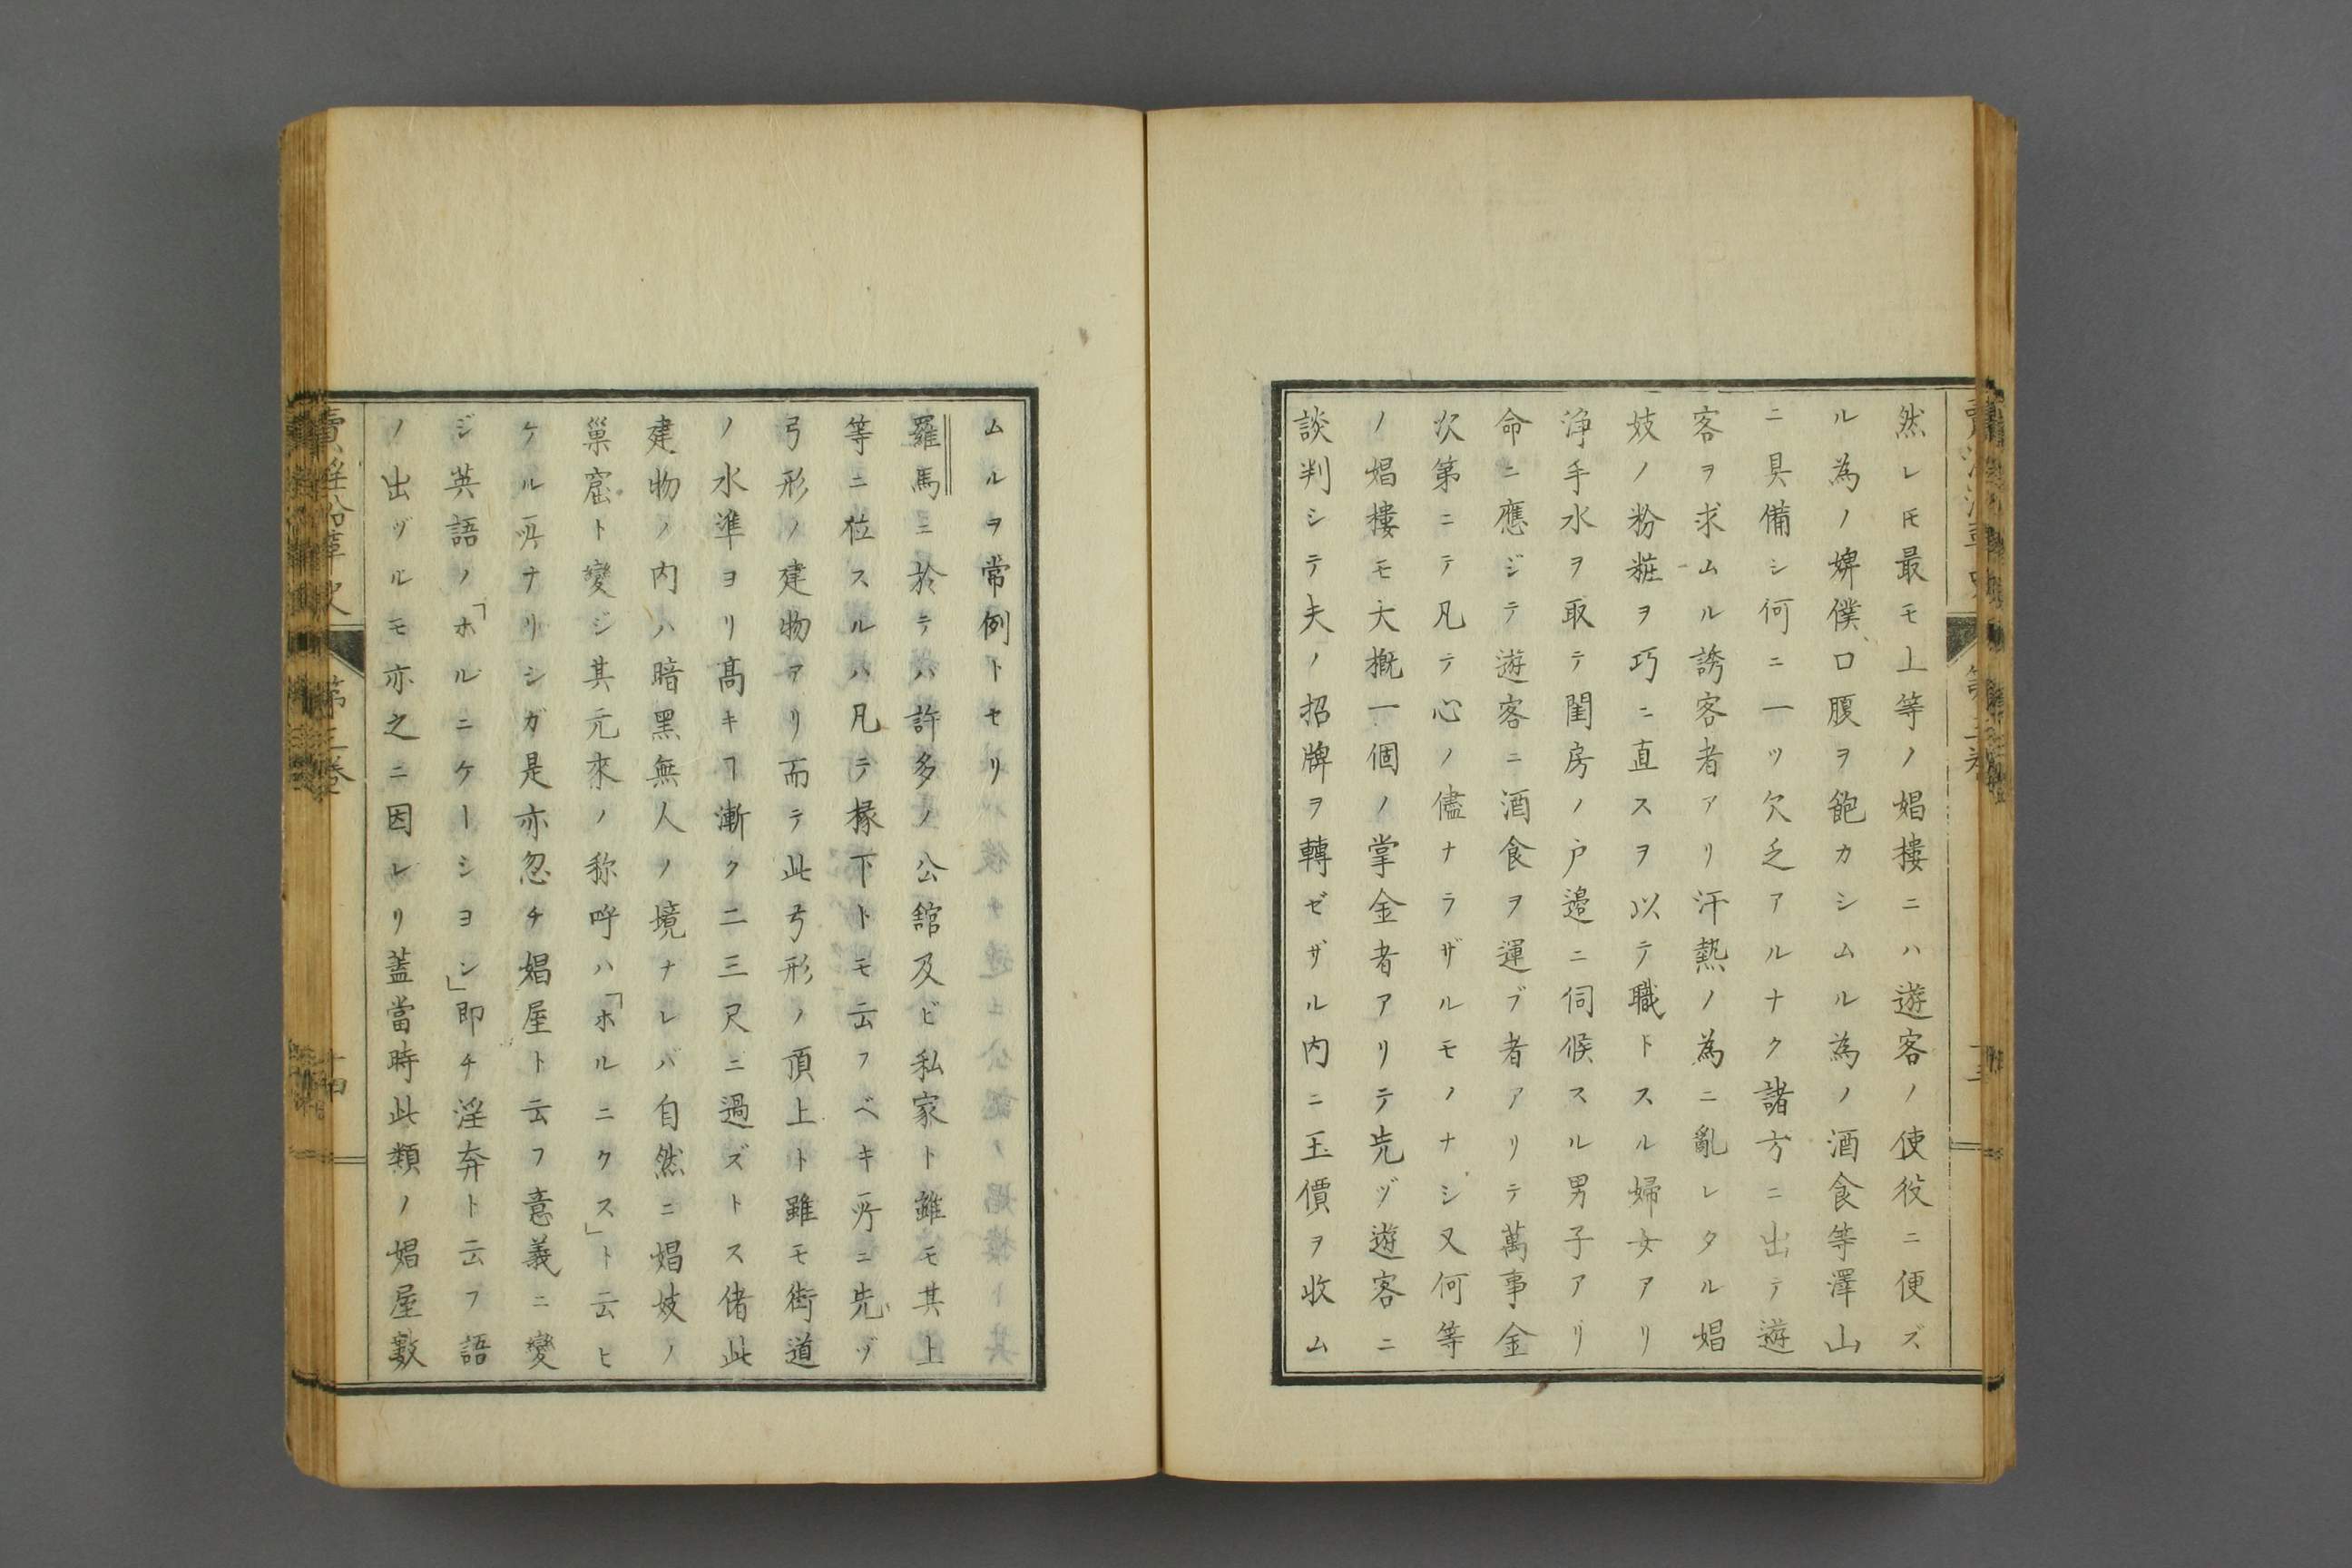 然レ𪜈最モ上等ノ娼樓ニハ遊客ノ使役ニ便ズ
ル為ノ婢僕、口腹ヲ飽カシムル為ノ酒食等澤山
ニ具備シ何ニ一ツ欠乏アルナク諸方ニ出テ遊
客ヲ求ムル誘客者アリ汗熱ノ為ニ亂レタル娼
妓ノ粉粧ヲ巧ニ直スヲ以テ職トスル婦女アリ
浄手水ヲ取テ閨房ノ戸邉ニ伺候スル男子アリ
命ニ應ジテ遊客ニ酒食ヲ運ブ者アリテ萬事金
次第ニテ凡テ心ノ儘ナラザルモノナシ又何等
ノ娼樓モ大概一個ノ掌金者アリテ先ヅ遊客ニ
談判シテ夫ノ招牌ヲ轉ゼザル内ニ玉價ヲ收ム
ムルヲ常例トセリ
羅馬ニ於テハ許多ノ公舘及ビ私家ト雖モ其上
等ニ位スルハ凡テ椽下トモ云フベキ所ニ先ヅ
弓形ノ建物アリ而テ此弓形ノ頂上ト雖モ街道
ノ水準ヨリ髙キヿ漸ク二三尺ニ過ズトス偖此
建物ノ内ハ暗黒無人ノ境ナレバ自然ニ娼妓ノ
巢窟ト變ジ其元來ノ称呼ハ「ホルニクス」ト云ヒ
ケル所ナリシガ是亦忽チ娼屋ト云フ意義ニ變
ジ英語ノ「ホルニケーシヨン」即チ淫奔ト云フ語
ノ出ヅルモ亦之ニ因レリ蓋當時此類ノ娼屋數
賣淫沿革史 第三卷 十四